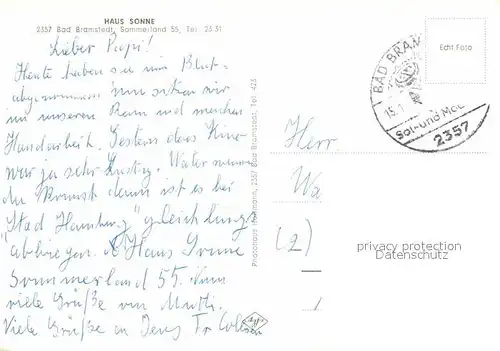 HAUS SONNE
2357 Bad Bramstedt, Sommerland 55, Tel. 23 31
Lieber Papi!
Heute haben sie mir Blut-
abgenommen nun sitzen wir
in unseren Raum und machen
Handarbeit. Gestern das Kino
war ja sehr lustig. Vater wenn
du kommst dann ist es bei
"Stad Hamburg" gleich links
abbiegen. Haus Sonne
Sommerland 55. Nun
viele Grüße von Mutti.
Viele Grüße an Jens
Photohaus 2357 Bad Bramstedt, Tel. 423
Herr
Wa
(2)
BAD BRAM
15.1
Sol- und Moo
2357
Echt Foto
privacy protection
Datenschutz